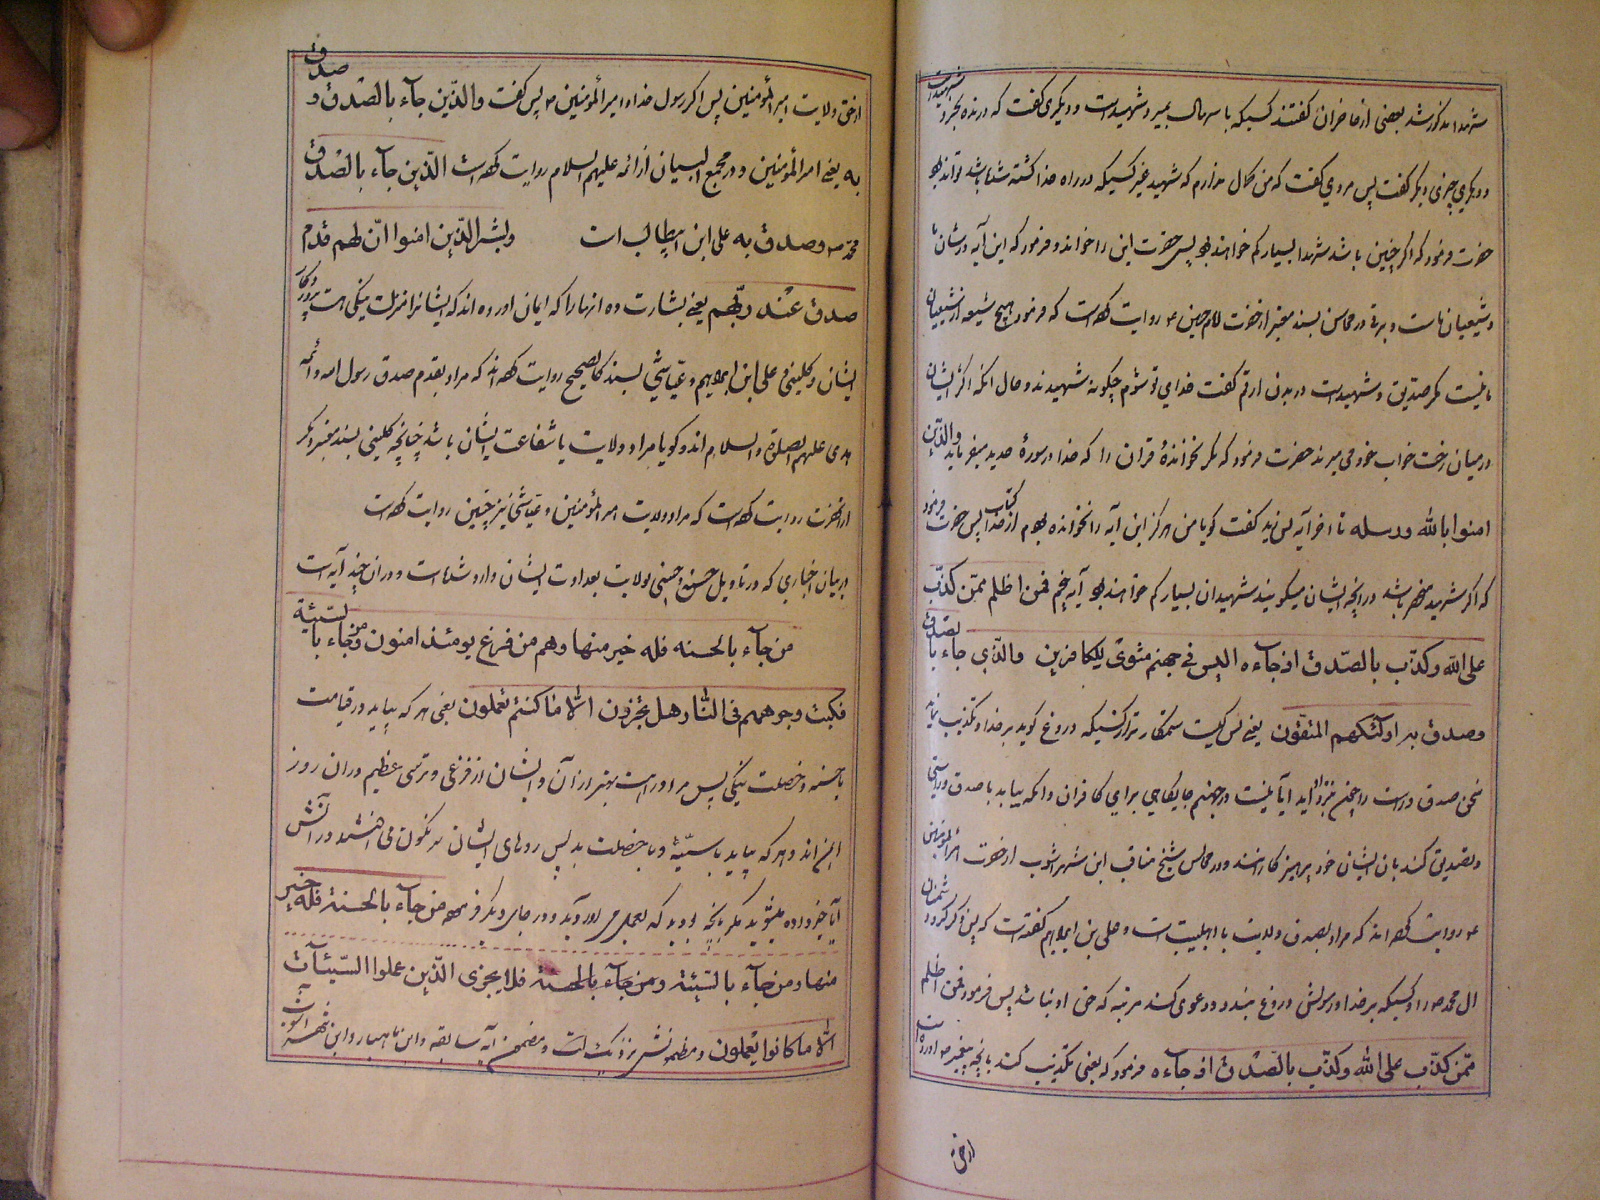 شهدا مذکور شد بعضی از حاضران گفتند کسیکه با سهال بمیرد شهیدست و دیگری گفت که درنده بخورد شهیدست
و دیگری چیزی دیگر گفت پس مردی گفت که من کمال ندارم که شهید غیر کسیکه در راه خدا کشته شده باشد تواند بود
حضرت فرمود که اگر چنین باشد شهدا بسیار کم خواهند بود پس حضرت این را خواند و فرمود که این آیه در شان ما
و شیعیان ماست و برقی در محاسن بسند معتبر از حضرت امام حسین ع روایت کرده است که فرمود هیچ شیعه از شیعیان
ما نیست مگر صدیق و شهیدست زید بن ارقم گفت فدای تو شوم چگونه شهیدند و حال آنکه اکثر ایشان
در میان رخت خواب خود می میرند حضرت فرمود که مگر نخوانده قرآن را که خدا در سوره حدید میفرماید والذین
امنوا بالله ورسله تا آخر آیه پس زید گفت گویا من هرگز این آیه را نخوانده بودم از کتاب خدا پس حضرت فرمود
که اگر شهید منحصر باشد در آنچه ایشان میگویند شهیدان بسیار کم خواهند بود آیه پنجم فمن اظلم ممن کذب
علی الله وکذب بالصدق اذ جاءه الیس فی جهنم مثوی للکافرین والذی جاء بالصدق
وصدق به اولئک هم المتقون یعنی پس کیست ستمکارتر از کسیکه دروغ گوید بر خدا و تکذیب نماید
سخن صدق و راست را چون نزد او آید آیا نیست در جهنم جایگاهی برای کافران و آنکه بیاید با صدق و راستی
و تصدیق کند بآن ایشان خود پرهیزکارانند و در مجالس شیخ مناقب ابن شهراشوب از حضرت امیرالمؤمنین
ع روایت کرده اند که مراد بصدق ولایت ما اهلبیت است و علی بن ابراهیم گفته است که پس ذکر کرد دشمنان
آل محمد ص را و کسیکه بر خدا و رسولش دروغ بندد و دعوی کند مرتبه که حق او نباشد پس فرمود فمن اظلم
ممن کذب علی الله وکذب بالصدق اذ جاءه فرمود که یعنی تکذیب کند بآنچه پیغمبر ص آورده است
از حق
از حق و ولایت امیرالمؤمنین پس ذکر رسول خدا و امیرالمؤمنین ع پس گفت والذین جاء بالصدق و صدق
به یعنی امیرالمؤمنین و در مجمع البیان از ائمه علیهم السلام روایت کرده است الذین جاء بالصدق
محمد ص وصدق به علی ابن ابیطالب است وبشر الذین امنوا ان لهم قدم
صدق عند ربهم یعنی بشارت ده آنها را که ایمان آورده اند که ایشانرا منزلت نیکی هست پروردگار
ایشان و کلینی و علی ابن ابراهیم و عیاشی بسند کالصحیح روایت کرده اند که مراد بقدم صدق رسول الله و ائمه
هدی علیهم الصلوة والسلام اند و گویا مراد ولایت یا شفاعت ایشان باشد چنانچه کلینی بسند معتبر دیگر
از آنحضرت روایت کرده است که مراد ولایت امیرالمؤمنین و عیاشی نیز چنین روایت کرده است
در بیان اخباری که در تاویل حسنه و حسنی بولایت بعداوت ایشان وارد شده است و در آن چند آیه است
من جاء بالحسنه فله خیر منها وهم من فزع یومئذ امنون ومن جاء بالسیئة
فکبت وجوههم فی النار هل تجزون الا ما کنتم تعملون یعنی هر که بیاید در قیامت
با حسنه و خصلت نیکی پس مر او راست بهتر از آن و ایشان از فزعی و ترسی عظیم در آن روز
ایمن اند و هر که بیاید با سیئه و با خصلت بد پس روهای ایشان سرنگون می افتد در آتش
آیا جزا داده میشوید مگر بآنچه بودید که بعمل می آوردید و در جای دیگر فرموده من جاء بالحسنة فله خیر
منها ومن جاء بالسیئة ومن جاء بالحسنة فلا یجزی الذین عملوا السیئات
الا ما کانوا یعملون و مضمونش نزدیک است و مضمون آیه سابقه و ابن ماهیار و ابن شهر آشوب